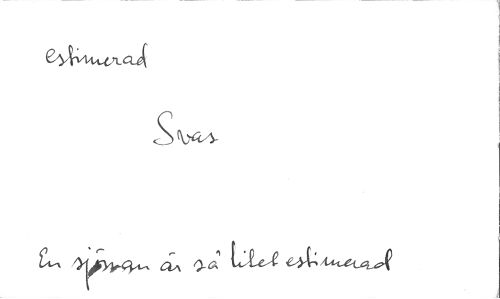 estimerad
Svas
En sjöman är så litet estimerad